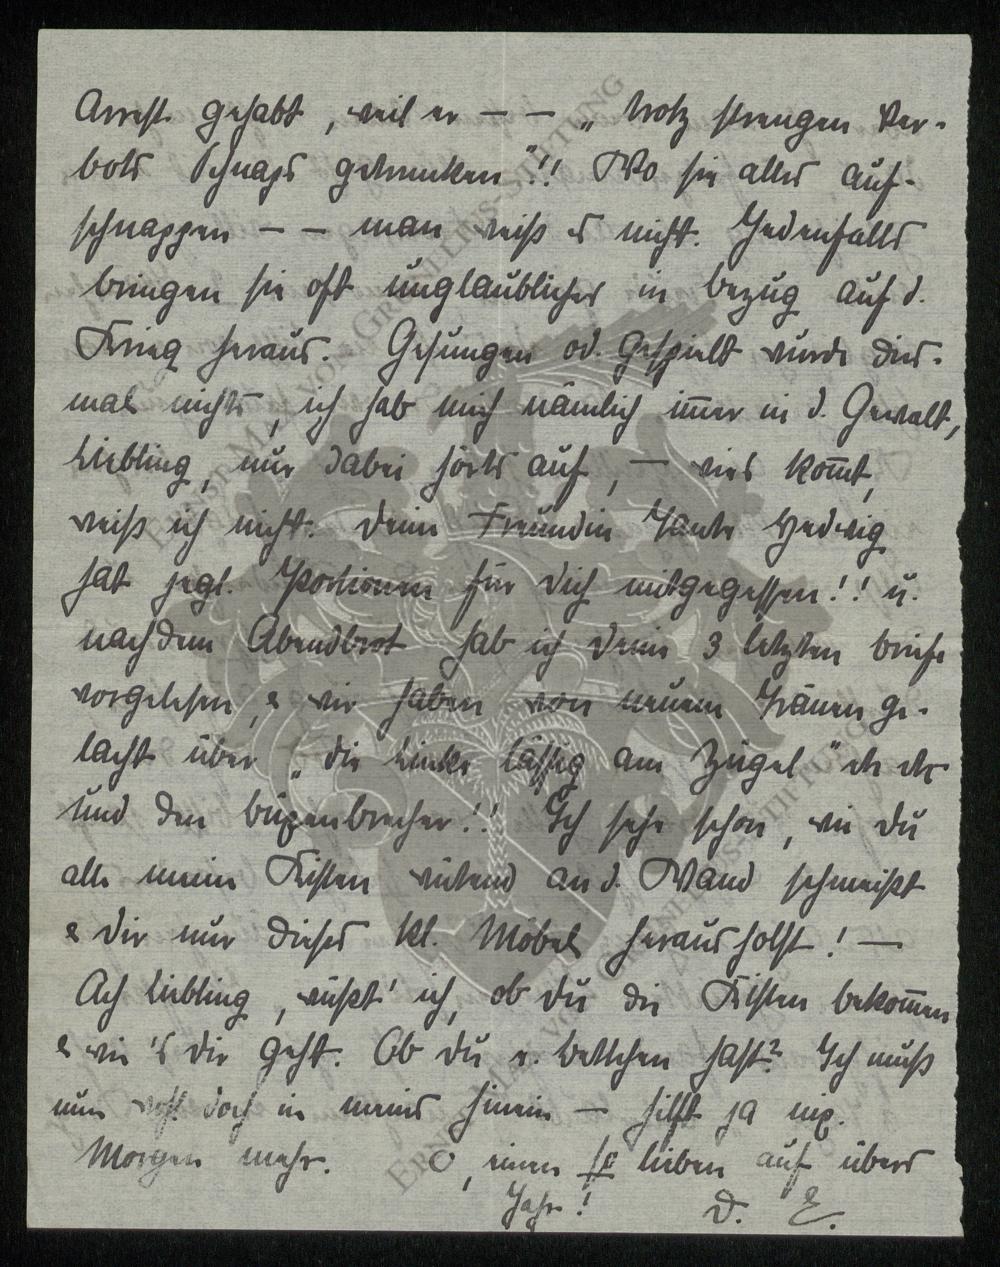 Arrest gehabt, weil er – – „trotz strengen Ver-
bots Schnaps getrunken"!! Wo sie alles auf-
schnappen – – man weiß es nicht. Jedenfalls
bringen sie oft unglaubliches in bezug auf d.
Krieg heraus. Gesungen od. gespielt wurde dies-
mal nichts, ich hab mich nämlich immer in d. Gewalt,
Liebling, nur dabei hörts auf, – wies kommt,
weiß ich nicht. Deine Freundin Tante Hedwig
hat jegl. Portionen für Dich mitgegessen!! u.
nach dem Abendbrot hab ich Deine 3 letzten Briefe
vorgelesen, & wir haben von neuem Tränen ge-
lacht über „die Linke lässig am Zügel" etc etc
und den !! Ich sehe schon, wie Du
alle meine Kisten wütend an d. Wand schmeißt
& Dir nur dieses kl. Möbel heraus holst! –
Ach Liebling, wüßt' ich, ob Du die Kisten bekommen
& wie 's Dir geht. Ob Du e. Bettchen hast? Ich muß
nun doch in meins hinein – hilft ja nix.
Morgen mehr. O, einen lieben auf übers
Jahr! D. E.
ERNST MAX VON GRUNELIUS-STIFTUNG
ERNST MAX VON GRUNELIUS-STIFTUNG